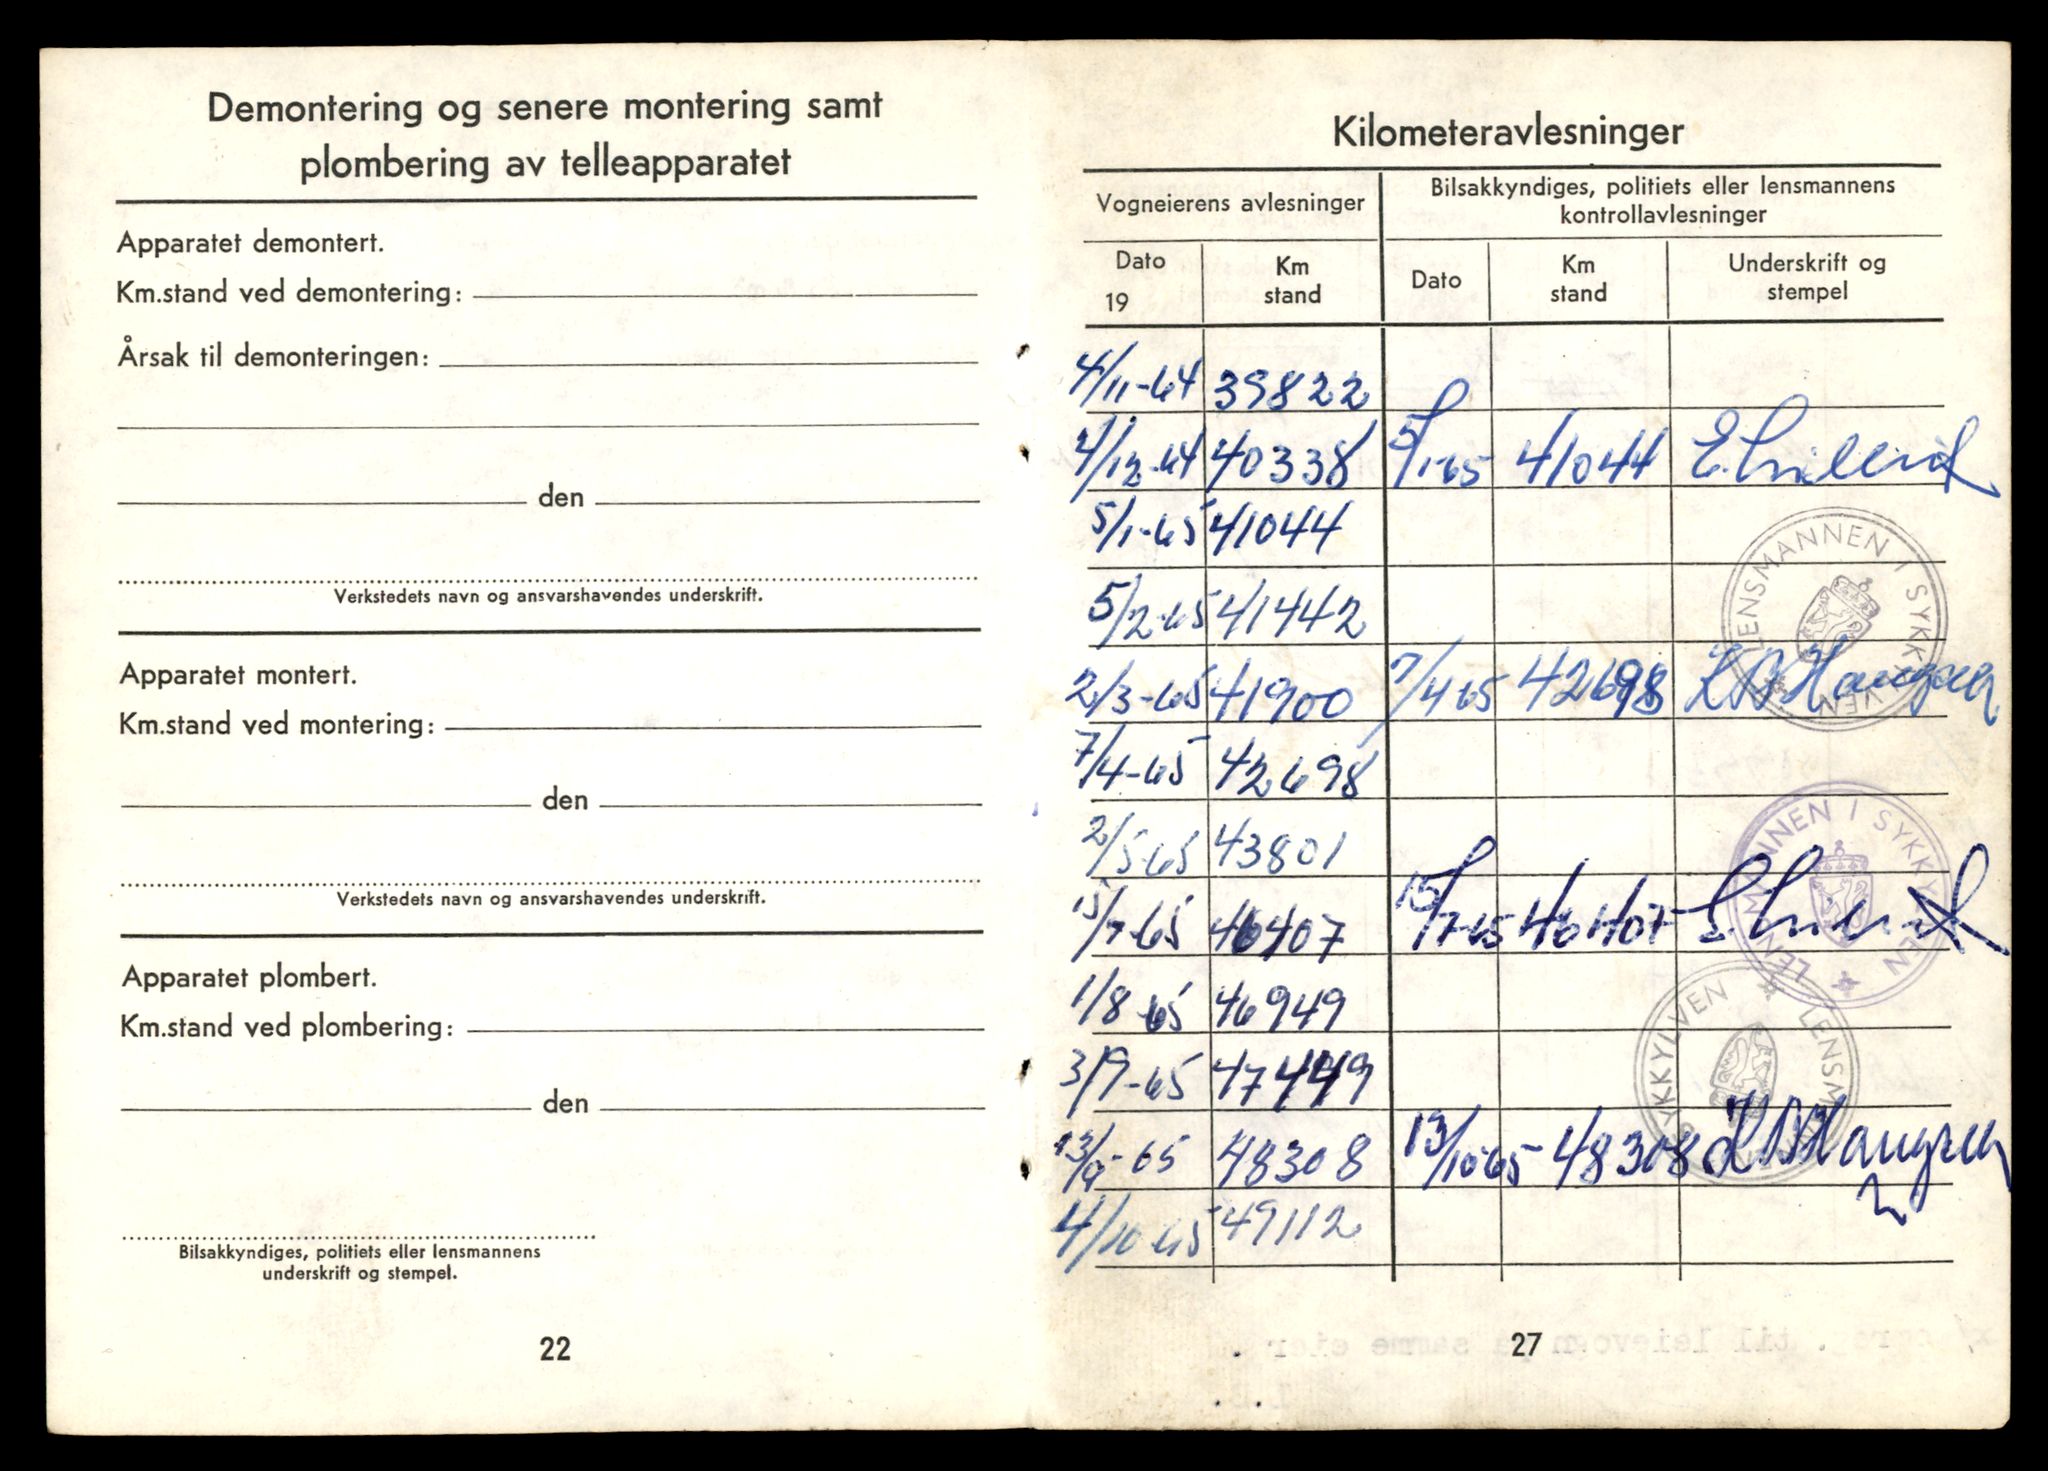 Demontering og senere montering samt
plombering av telleapparatet
Apparatet demontert.
Km.stand ved demontering:
Årsak til demonteringen:
den
Verkstedets navn og ansvarshavendes underskrift.
Apparatet montert.
Km.stand ved montering:
den
Verkstedets navn og ansvarshavendes underskrift.
Apparatet plombert.
Km.stand ved plombering:
den
Bilsakkyndiges, politiets eller lensmannens
underskrift og stempel.
22
Kilometeravlesninger
Vogneierens avlesninger
Bilsakkyndiges, politiets eller lensmannens
kontrollavlesninger
Dato
19
Km
stand
Dato
Km
stand
Underskrift og
stempel
4/11-64 39822
4/12-64 40338 5/1-65 41044
5/1-65 41044
LENSMANNEN I SYKKYLVEN
5/2-65 41442
2/3-65 41900 7/4 65 42698
7/4-65 42698
2/5-65 43801
LENSMANNEN I SYKKYLVEN
15/7-65 46407 15/7-65 46407
1/8-65 46949
LENSMANNEN I SYKKYLVEN
3/9-65 47449
13/9-65 48308 13/10-65 48308
4/10-65 49112
27